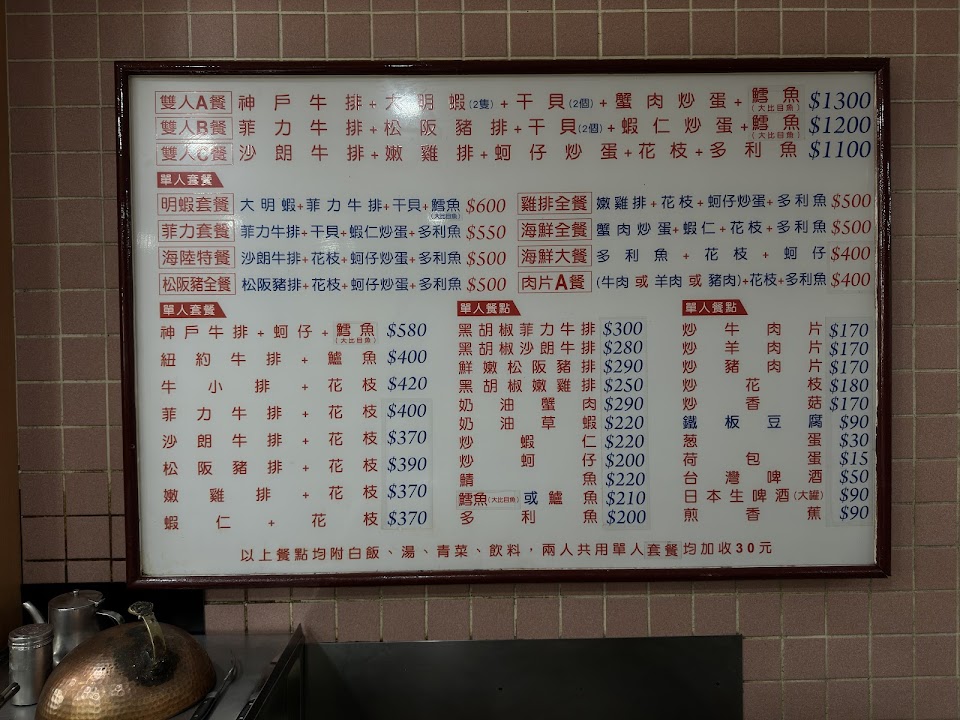 雙人A餐 神戶牛排+大明蝦(2隻)+干貝(2個)+蟹肉炒蛋+鱈魚(大比目魚) $1300
雙人B餐 菲力牛排+松阪豬排+干貝(2個)+蝦仁炒蛋+鱈魚(大比目魚) $1200
雙人C餐 沙朗牛排+嫩雞排+蚵仔炒蛋+花枝+多利魚 $1100
單人套餐
明蝦套餐 大明蝦+菲力牛排+干貝+鱈魚(大比目魚) $600
菲力套餐 菲力牛排+干貝+蝦仁炒蛋+多利魚 $550
海陸特餐 沙朗牛排+花枝+蚵仔炒蛋+多利魚 $500
松阪豬全餐 松阪豬排+花枝+蚵仔炒蛋+多利魚 $500
雞排全餐 嫩雞排+花枝+蚵仔炒蛋+多利魚 $500
海鮮全餐 蟹肉炒蛋+蝦仁+花枝+多利魚 $500
海鮮大餐 多利魚+花枝+蚵仔 $400
肉片A餐 (牛肉或羊肉或豬肉)+花枝+多利魚 $400
單人套餐
神戶牛排+蚵仔+鱈魚(大比目魚) $580
紐約牛排+鱸魚 $400
牛小排+花枝 $420
菲力牛排+花枝 $400
沙朗牛排+花枝 $370
松阪豬排+花枝 $390
嫩雞排+花枝 $370
蝦仁+花枝 $370
單人餐點
黑胡椒菲力牛排 $300
黑胡椒沙朗牛排 $280
鮮嫩松阪豬排 $290
黑胡椒嫩雞排 $250
奶油蟹肉 $290
奶油草蝦 $220
炒蝦仁 $220
炒蚵仔 $200
鯖魚 $220
鱈魚(大比目魚)或鱸魚 $210
多利魚 $200
單人餐點
炒牛肉片 $170
炒羊肉片 $170
炒豬肉片 $170
炒花枝 $180
炒香菇 $170
鐵板豆腐 $90
蔥蛋 $30
荷包蛋 $15
台灣啤酒 $50
日本生啤酒(大罐) $90
煎香蕉 $90
以上餐點均附白飯、湯、青菜、飲料，兩人共用單人套餐均加收30元